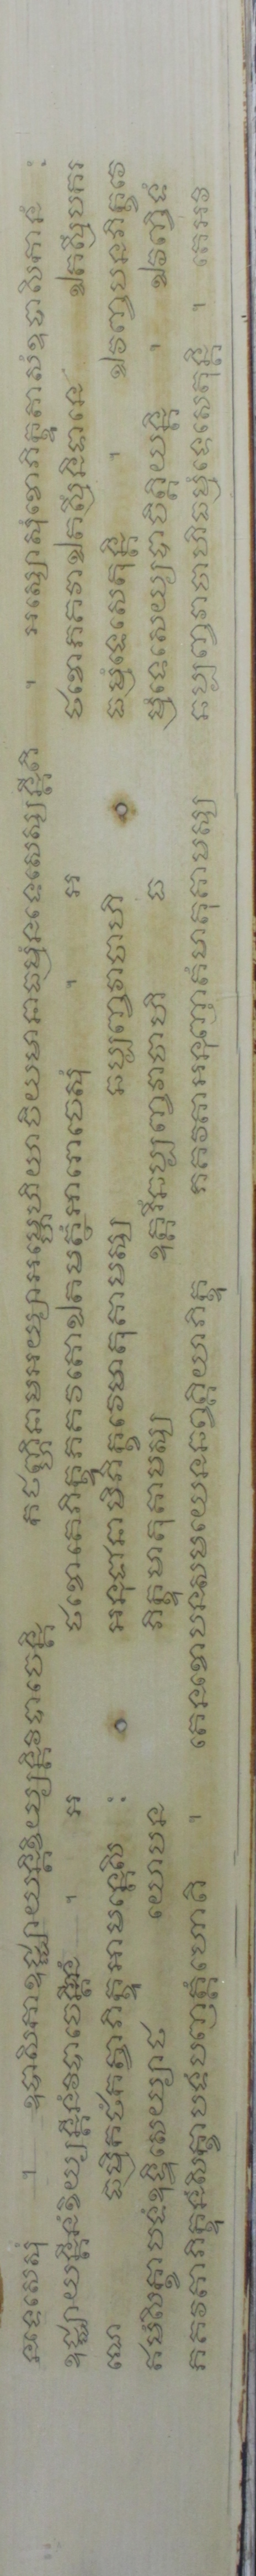 នទេសេសុំ ។ ឧបាសិកាឧជ្ឈាយន្តិខិយ្យន្តិវិបាចេន្តិ កថញ្ហិនាមអយ្យាអម្ហេហិយាចិយមានាធម្មំនទេសេស្សន្តីតិ ។ អស្សោសុំខោភិក្ខូតាសំឧបាសិកានំ :
ឧជ្ឈាយន្តីនំខិយ្យន្តីនំវិបាចេន្តីនំ ។ អ ថខោតេភិក្ខូភគវតោឯតមត្ថំអារោចេសុំ ។ អ ថខោភគវាឯតស្មឹនិទានេ ឯតស្មឹបករ
ណេ ធម្មិកថំកត្វាភិក្ខូអាមន្តេសិ : អនុជានាមិភិក្ខវេមាតុគាមស្ស ឆប្បញ្ចវាចាហិ ធម្មំទេសេតុន្តិ ។ ឯវញ្ចបនភិក្ខវេ
ឥមំសិក្ខាបទំឧទ្ទិសេយ្យាថ យោបន ភិក្ខុមាតុគាមស្ស ឧត្តរឹឆប្បញ្ចវាចាហិ ធ ម្មំទេសេយ្យបាចិត្តិយន្តិ ។ ឯវញ្ចិទំ
ភគវតាភិក្ខូនំសិក្ខាបទំបញ្ញត្តំហោតិ ។ តេនខោបនសមយេនឆព្វគ្គិយាភិក្ខូ ភគវតាអនុញ្ញាតំមាតុគាមស្ស ឆប្បញ្ចវាចាហិធម្មំទេសេតុន្តិ ។ តេអវិ